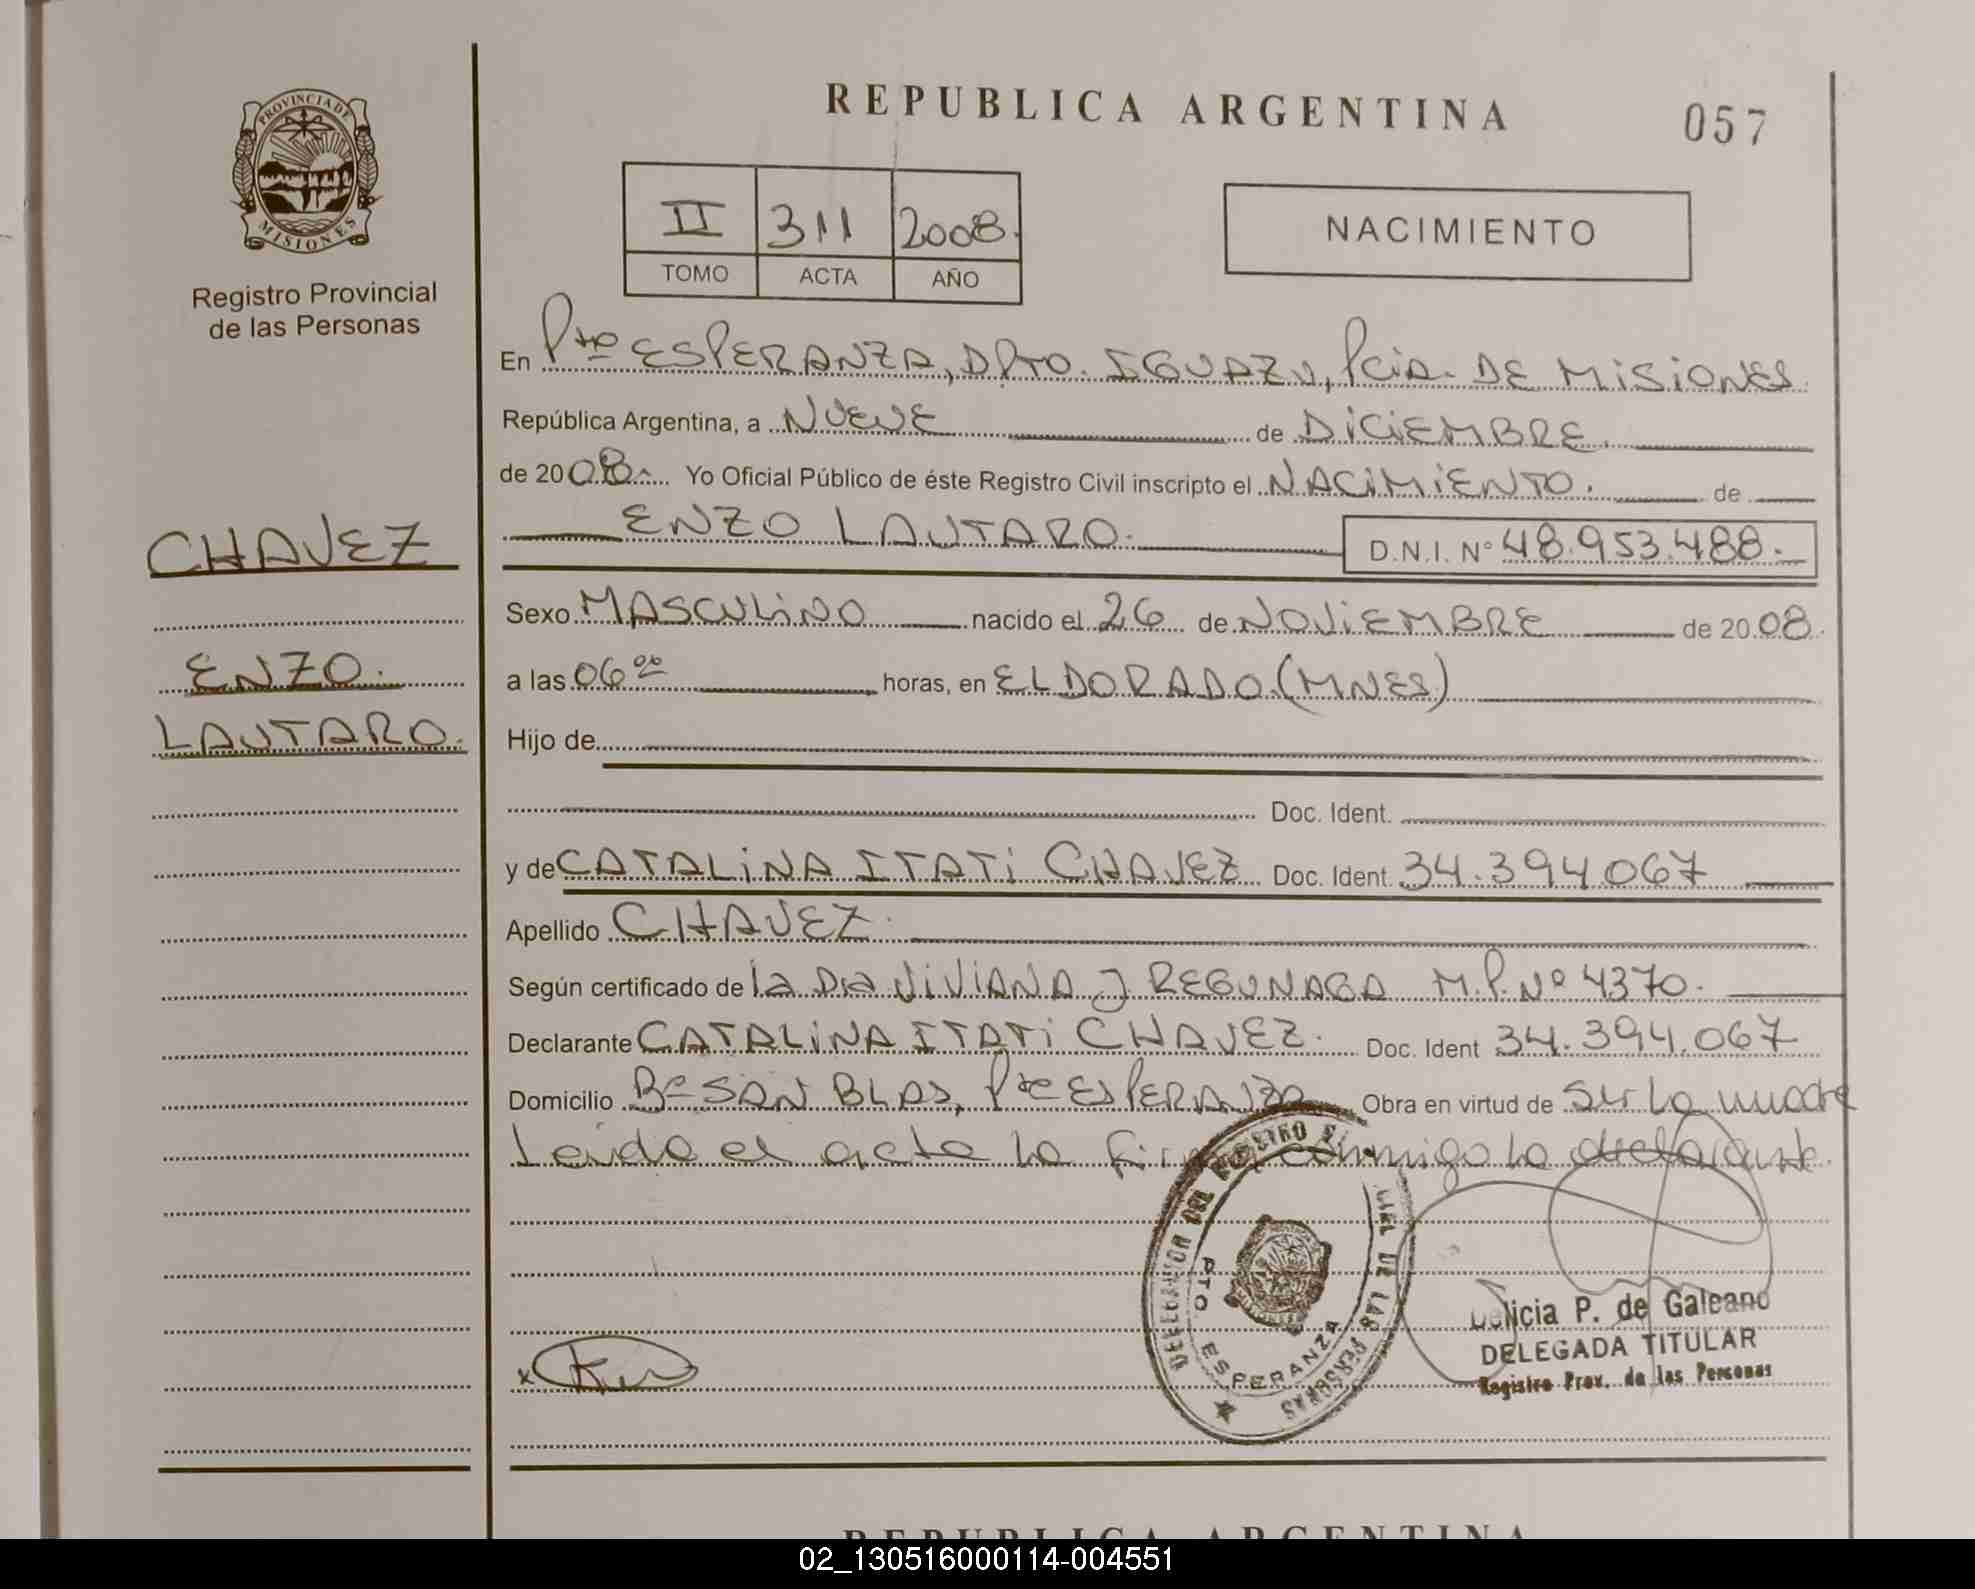 REPUBLICA ARGENTINA
057
PROVINCIA DE
MISIONES
Registro Provincial
de las Personas
II 311 2008.
TOMO ACTA AÑO
NACIMIENTO
CHAVEZ
ENZO.
LAUTARO.
En Pto ESPERANZA, DPTO. IGUAZU, Pcia. DE MISIONES.
República Argentina, a NUEVE de DICIEMBRE.
de 2008.- Yo Oficial Público de éste Registro Civil inscripto el NACIMIENTO. de
ENZO LAUTARO. D.N.I. Nº 48.953.488.-
Sexo MASCULINO nacido el 26 de NOVIEMBRE de 2008.
a las 06ºº horas, en ELDORADO.(MNES)
Hijo de
Doc. Ident.
y de CATALINA ITATI CHAVEZ Doc. Ident. 34.394.067
Apellido CHAVEZ.
Según certificado de la Dra VIVIANA J REGUNAGA M.P. Nº 4370.
Declarante CATALINA ITATI CHAVEZ. Doc. Ident 34.394.067
Domicilio Bº SAN BLAS, Pto ESPERANZA Obra en virtud de Ser la madre
Leida el acta la conmigo la declarante.
DELEGACION DEL REGISTRO DE LAS PERSONAS
PTO. ESPERANZA
Delicia P. de Galeano
DELEGADA TITULAR
Registro Prov. de las Personas
REPUBLICA ARGENTINA
02_130516000114-004551